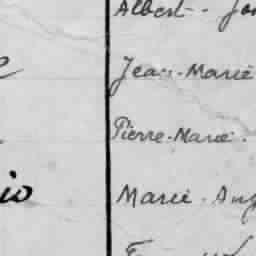 Albert - Jo
Jean-Marie
Pierre-Marie.
io Marie-Aug